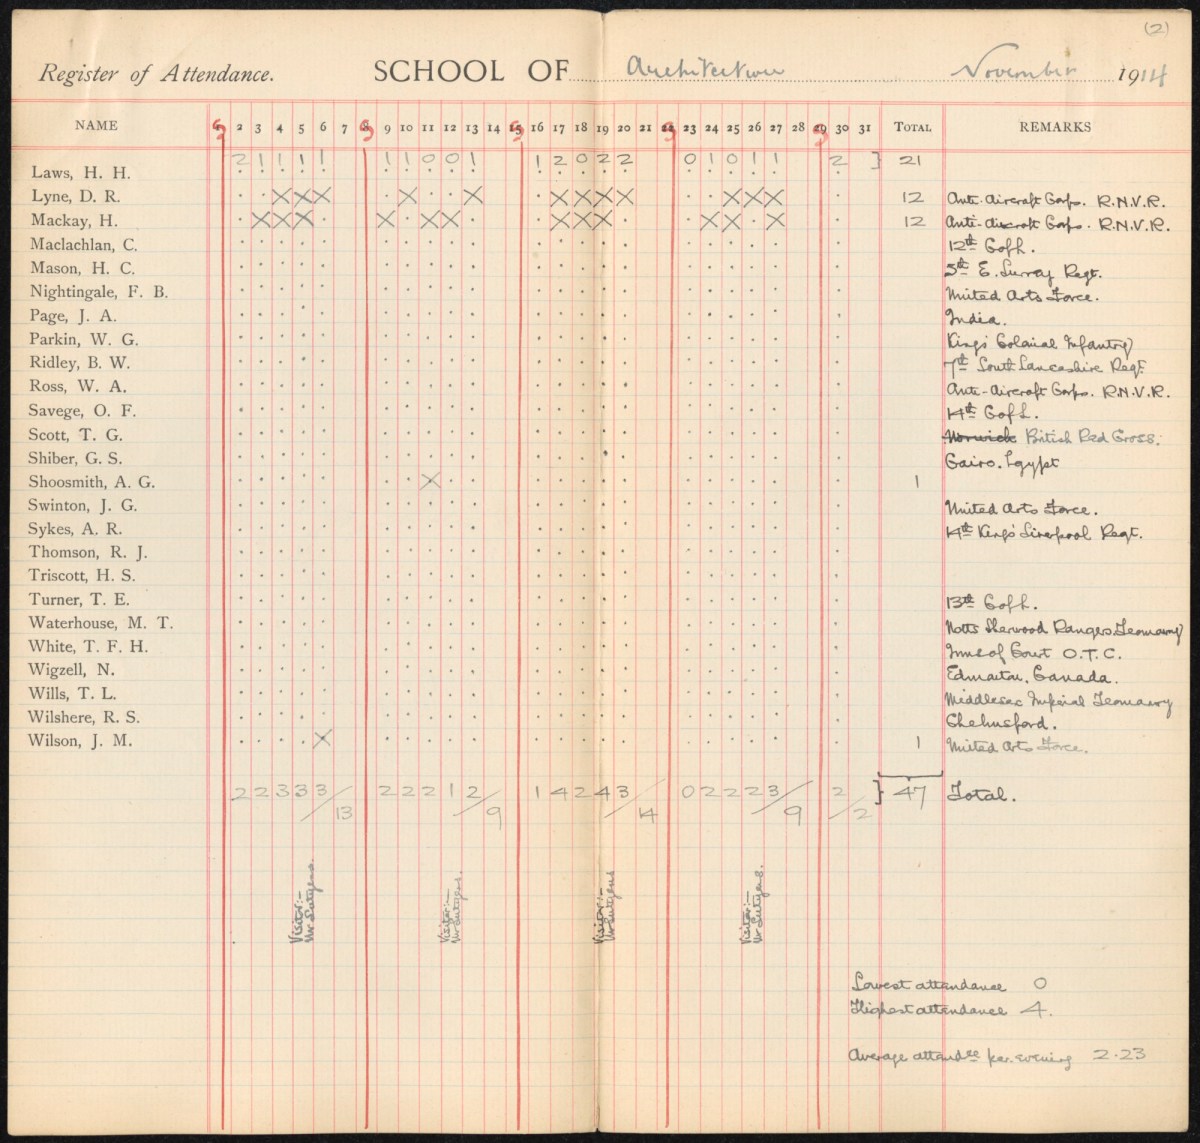 (2)
Register of Attendance. SCHOOL OF Architecture November 1914
NAME S 2 3 4 5 6 7 8 9 10 11 12 13 14 15 16 17 18 19 20 21 22 23 24 25 26 27 28 29 30 31 TOTAL REMARKS
2 1 1 1 1 1 1 0 0 1 1 2 0 2 2 0 1 0 1 1 2 } 21
Laws, H. H.
Lyne, D. R. X X X X X X X X X X X X 12 Anti-Aircraft Corps. R.N.V.R.
Mackay, H. X X X X X X X X X X X X 12 Anti-Aircraft Corps. R.N.V.R.
Maclachlan, C. 12th Co of L.
Mason, H. C. 5th E. Surrey Regt.
Nightingale, F. B. United Arts Force.
Page, J. A. India.
Parkin, W. G. King's Colonial Infantry
Ridley, B. W. 7th South Lancashire Regt
Ross, W. A. Anti-Aircraft Corps. R.N.V.R.
Savege, O. F. 14th C of L.
Scott, T. G. Norwich British Red Cross.
Shiber, G. S. Cairo. Egypt
Shoosmith, A. G. X 1
Swinton, J. G. United Arts Force.
Sykes, A. R. 14th King's Liverpool Regt.
Thomson, R. J.
Triscott, H. S.
Turner, T. E. 13th C of L.
Waterhouse, M. T. Notts Sherwood Rangers Yeomanry
White, T. F. H. Inns of Court O.T.C.
Wigzell, N. Edmonton, Canada.
Wills, T. L. Middlesex Imperial Yeomanry
Wilshere, R. S. Chelmsford.
Wilson, J. M. X 1 United Arts Force.
2 2 3 3 3/13 2 2 2 1 2/9 1 4 2 4 3/14 0 2 2 2 3/9 2/2 } 47 Total.
Visitor:- Mr Lutyens.
Visitor:- Mr Lutyens.
Visitor:- Mr Lutyens
Visitor:- Mr Lutyens.
Lowest attendance 0
Highest attendance 4.
Average attendce per evening 2.23